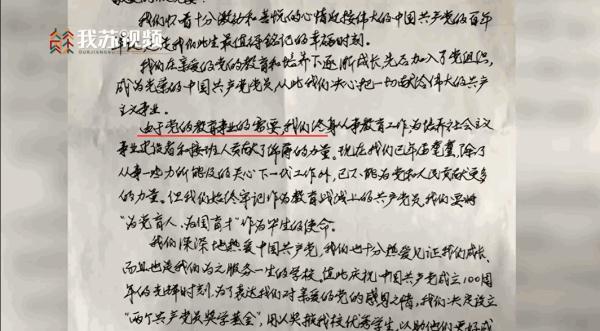 我苏视频
OURJIANGSU
我们怀着十分激动和喜悦的心情迎接伟大的中国共产党的百年
是我们此生最值得铭记的幸福时刻。
我们在亲爱的党的教育和培养下逐渐成长，先后加入了党组织，
成为光荣的中国共产党党员，从此我们决心把一切献给伟大的共产
主义事业。
由于党的教育事业的需要，我们终身从事教育工作，为培养社会主义
事业建设者和接班人贡献了绵薄的力量。现在我们已年届耄耋，除了
从事一些力所能及的关心下一代工作外，已不能为党和人民贡献更多
的力量。但我们始终牢记作为教育战线上的共产党员我们要将
“为党育人、为国育才”作为毕生的使命。
我们深深地热爱中国共产党，我们也十分热爱见证我们成长、
而且也是我们为之服务一生的学校。值此庆祝中国共产党成立100周
年的光辉时刻，为了表达我们对亲爱的党的感恩之情，我们决定设立
“两个共产党员奖学基金”，用以奖掖我校优秀学生，以助他们更好成